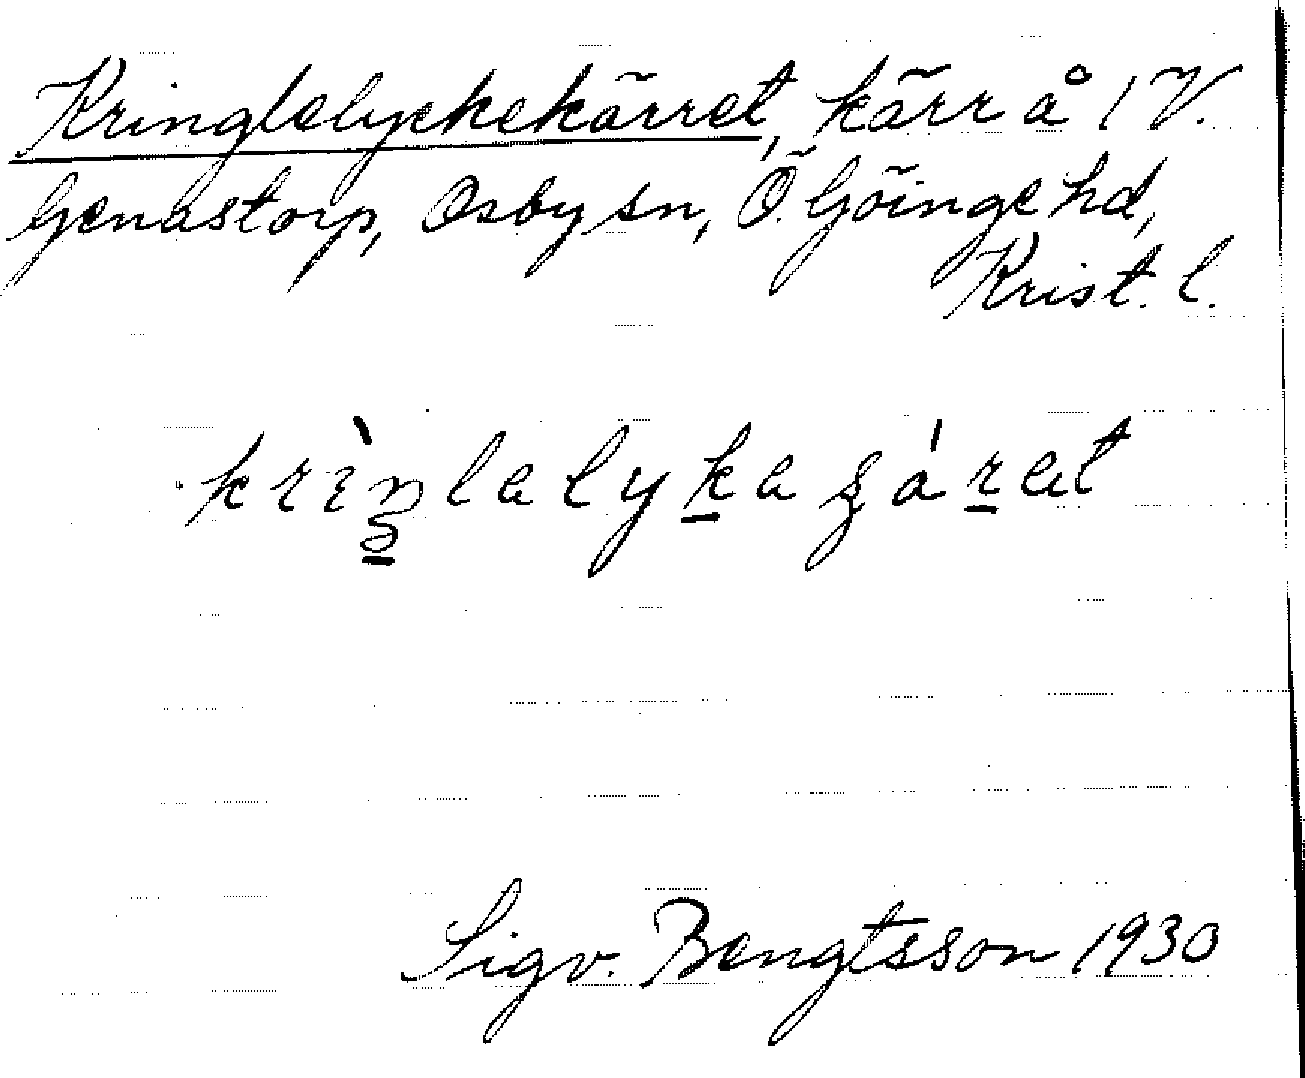 Kringlelyckekärret, kärr å 1 V.
Genastorp, Osby sn, Ö. Göinge hd,
Krist. l.
Sigv. Bengtsson 1930